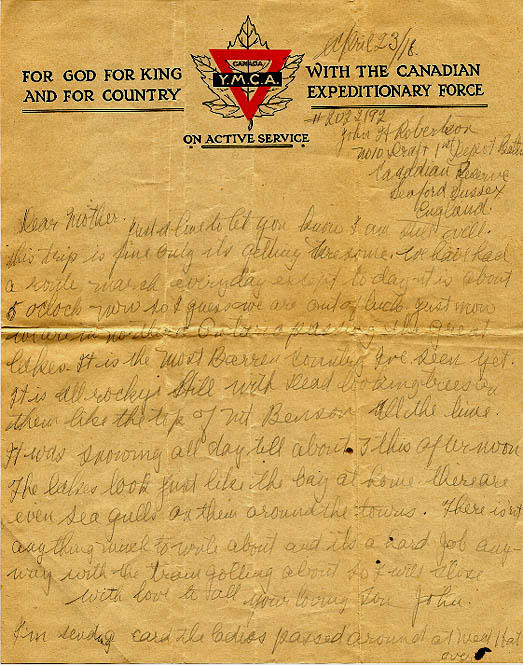 April 23/18.
FOR GOD FOR KING
AND FOR COUNTRY
CANADA
Y.M.C.A
WITH THE CANADIAN
EXPEDITIONARY FORCE
ON ACTIVE SERVICE
# 2022192
John H Robertson
No 10 Draft 1st Depot Battn
Canadian Reserve
Seaford Sussex
England.
Dear Mother.
Just a line to let you know I am still well.
this trip is fine only its getting tiresome. We have had
a route march everyday except to day it is about
5 oclock now so I guess we are out of luck. Just now
we are in northern Ontario passing the great
Lakes. It is the most Barren country I've seen yet.
It is all rocky hills with dead looking trees on
them like the top of Mt Benson all the time.
It was snowing all day till about 3 this afternoon
The Lakes look just like the bay at home there are
even sea gulls on them around the towns. There isn't
anything much to write about and its a hard job any-
way with the train jolling about so I will close
with love to all your loving son John.
I'm sending card the ladies passed around at Med Hat
over